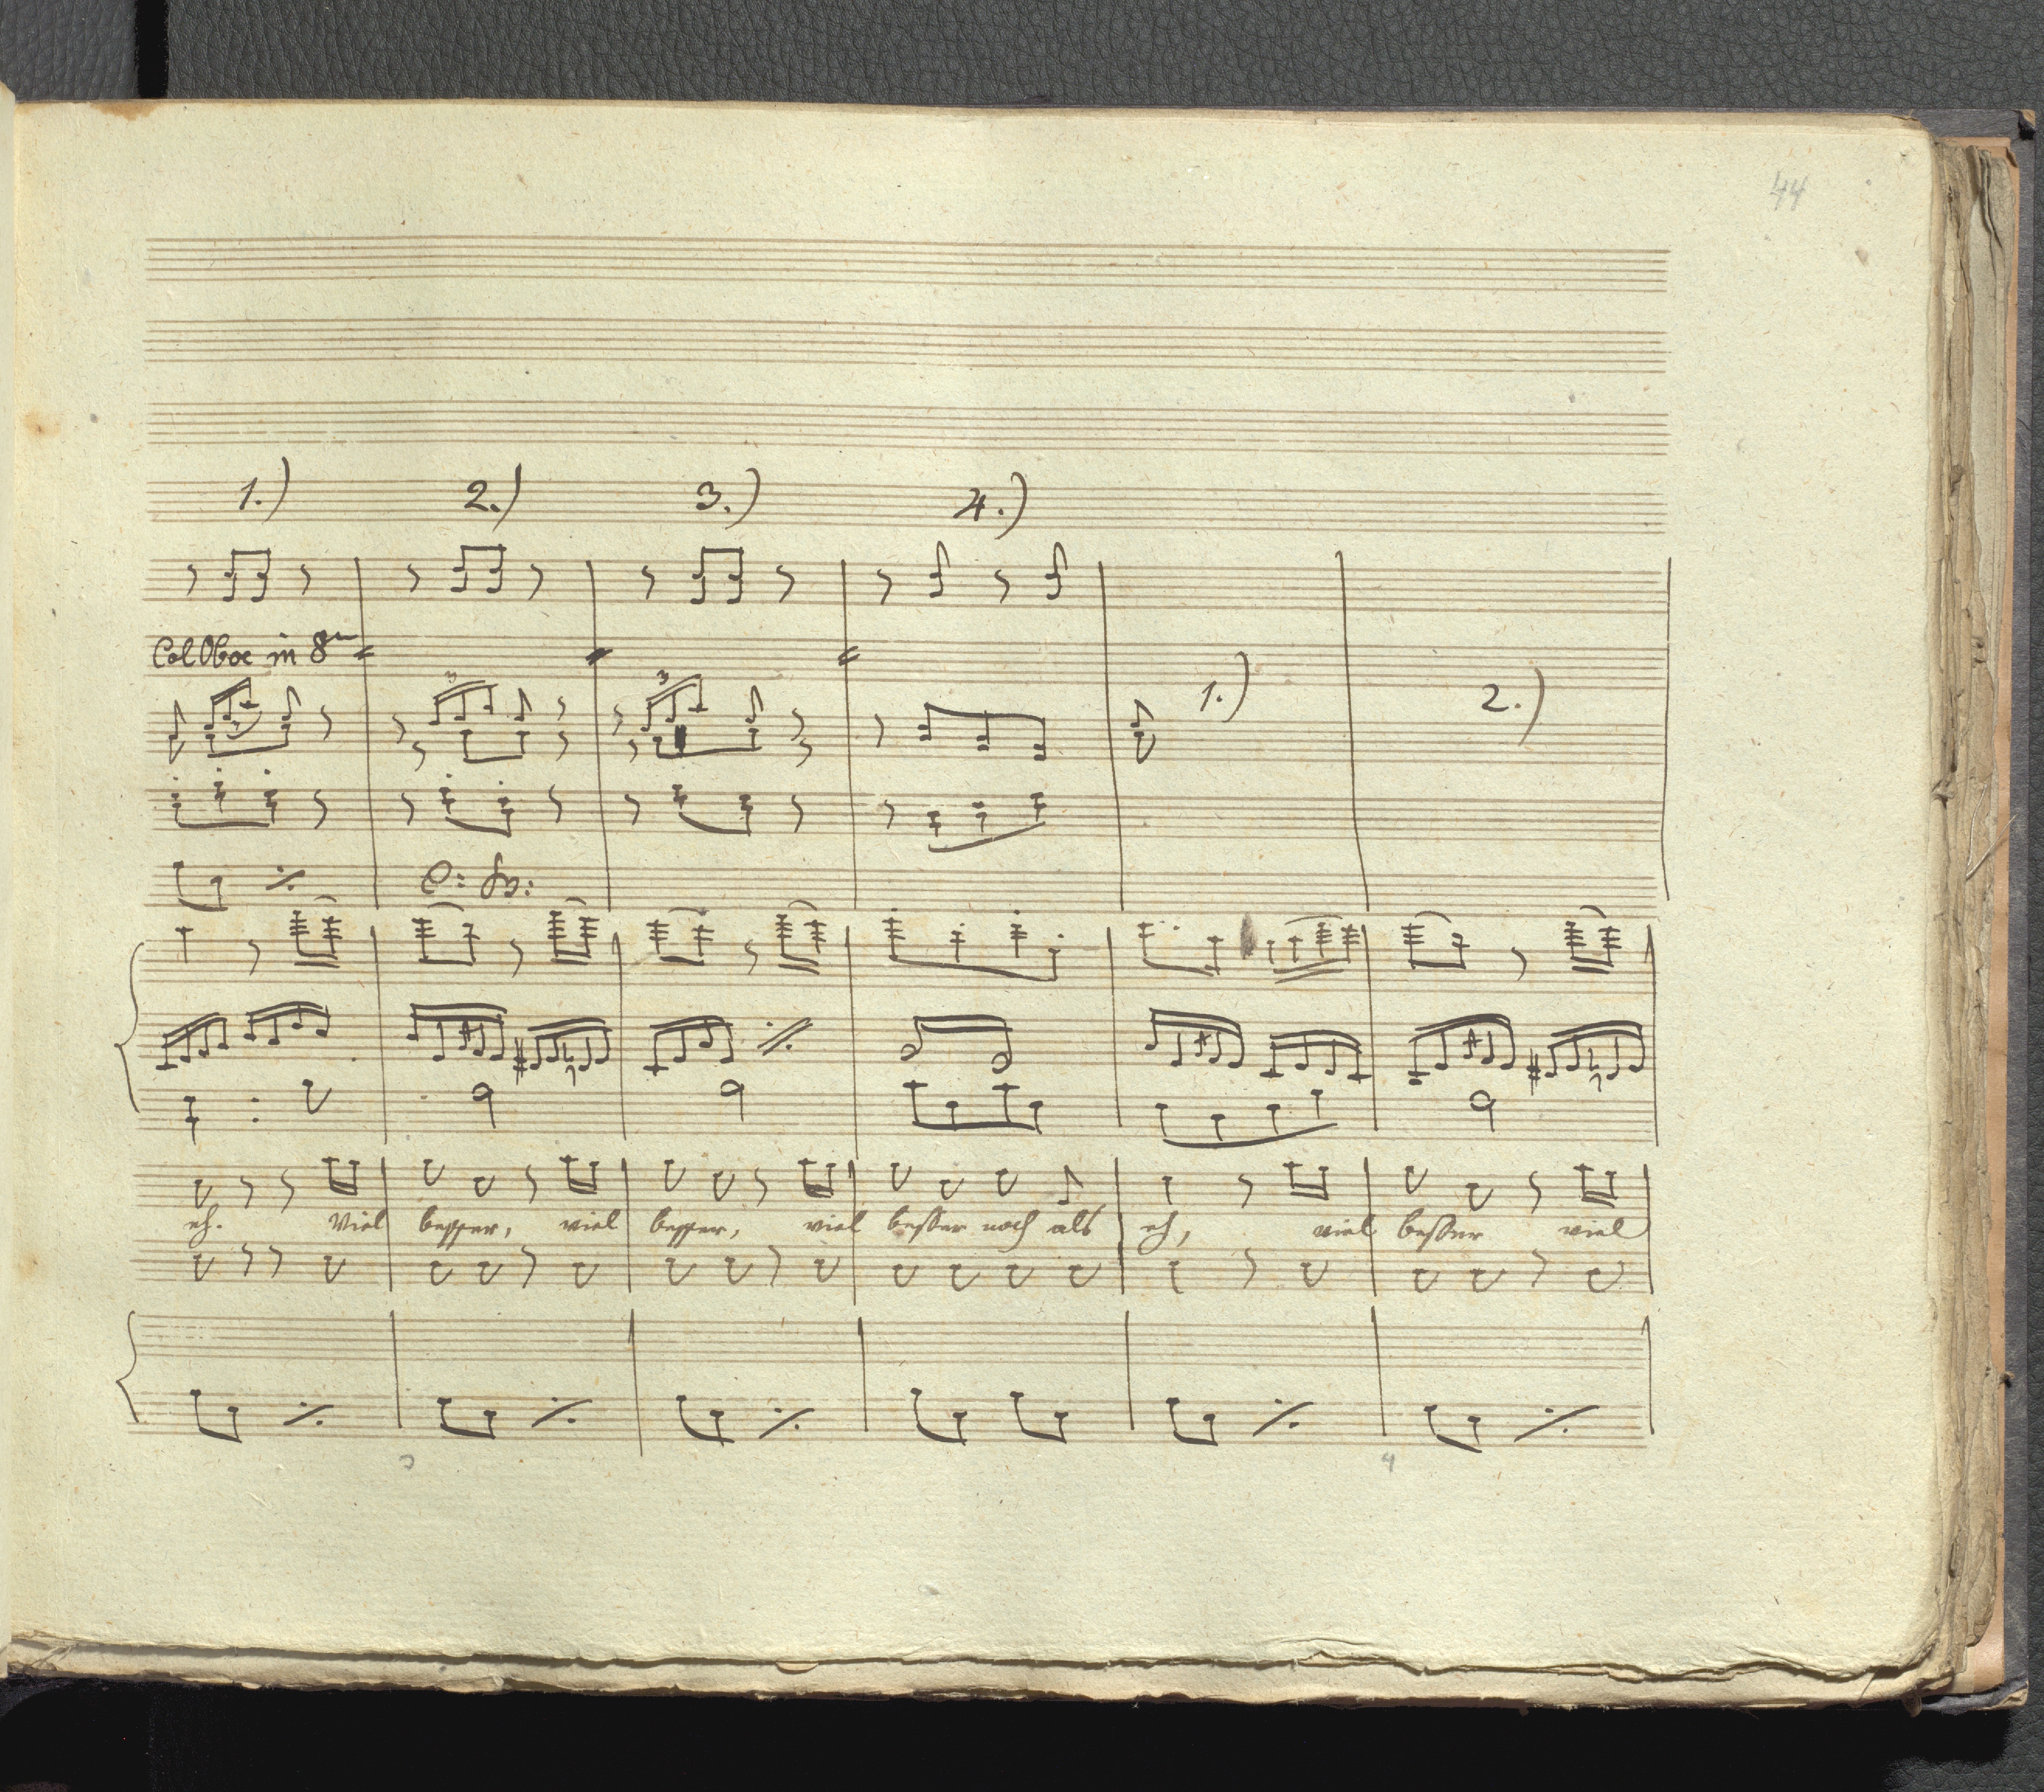 44
1.) 2.) 3.) 4.)
Col Oboe in 8va
3 3 3
1.) 2.)
eh. Viel besser, viel besser, viel besser noch als eh, viel besser viel
4